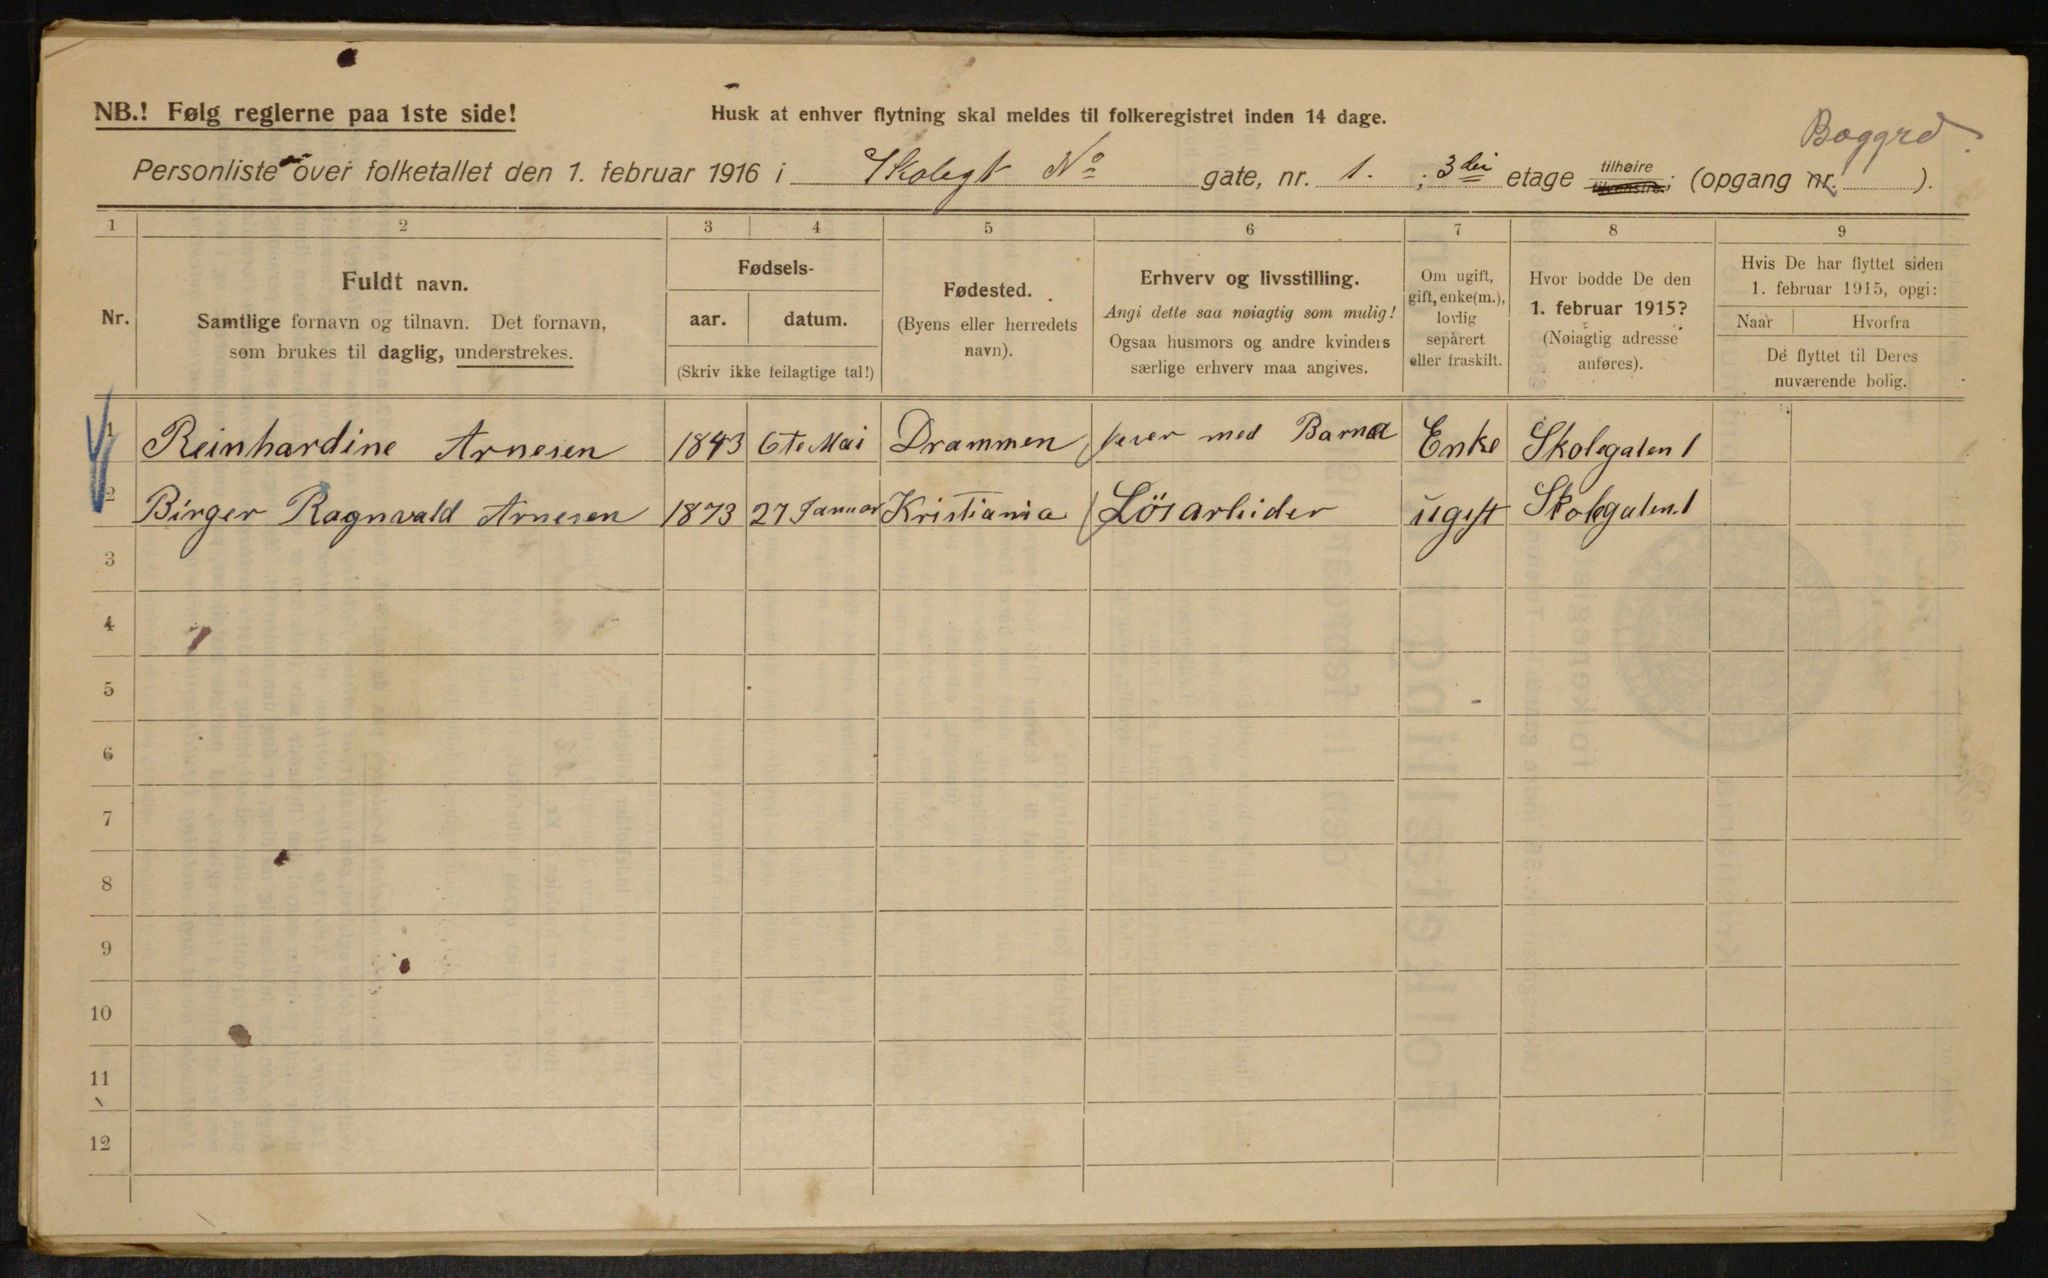 NB.! Følg reglerne paa 1ste side!
Husk at enhver flytning skal meldes til folkeregistret inden 14 dage.
Baggrd.
Personliste over folketallet den 1. februar 1916 i Skolegt No gate, nr. 1. ; 3die etage tilhøire tilvenstre; (opgang nr. ).
1 2 3 4 5 6 7 8 9
Nr.
Fuldt navn.
Samtlige fornavn og tilnavn. Det fornavn,
som brukes til daglig, understrekes.
Fødsels-
aar. datum.
(Skriv ikke feilagtige tal!)
Fødested.
(Byens eller herredets
navn).
Erhverv og livsstilling.
Angi dette saa nøiagtig som mulig!
Ogsaa husmors og andre kvinders
særlige erhverv maa angives.
Om ugift,
gift, enke(m.),
lovlig
separert
eller fraskilt.
Hvor bodde De den
1. februar 1915?
(Nøiagtig adresse
anføres).
Hvis De har flyttet siden
1. februar 1915, opgi:
Naar Hvorfra
De flyttet til Deres
nuværende bolig.
1 Reinhardine Arnesen 1843 6te Mai Drammen lever med Barna Enke Skolegaten 1
2 Birger Ragnvald Arnesen 1873 27 Januar Kristiania Lösarbeider ugift Skolegaten 1
3
4
5
6
7
8
9
10
11
12